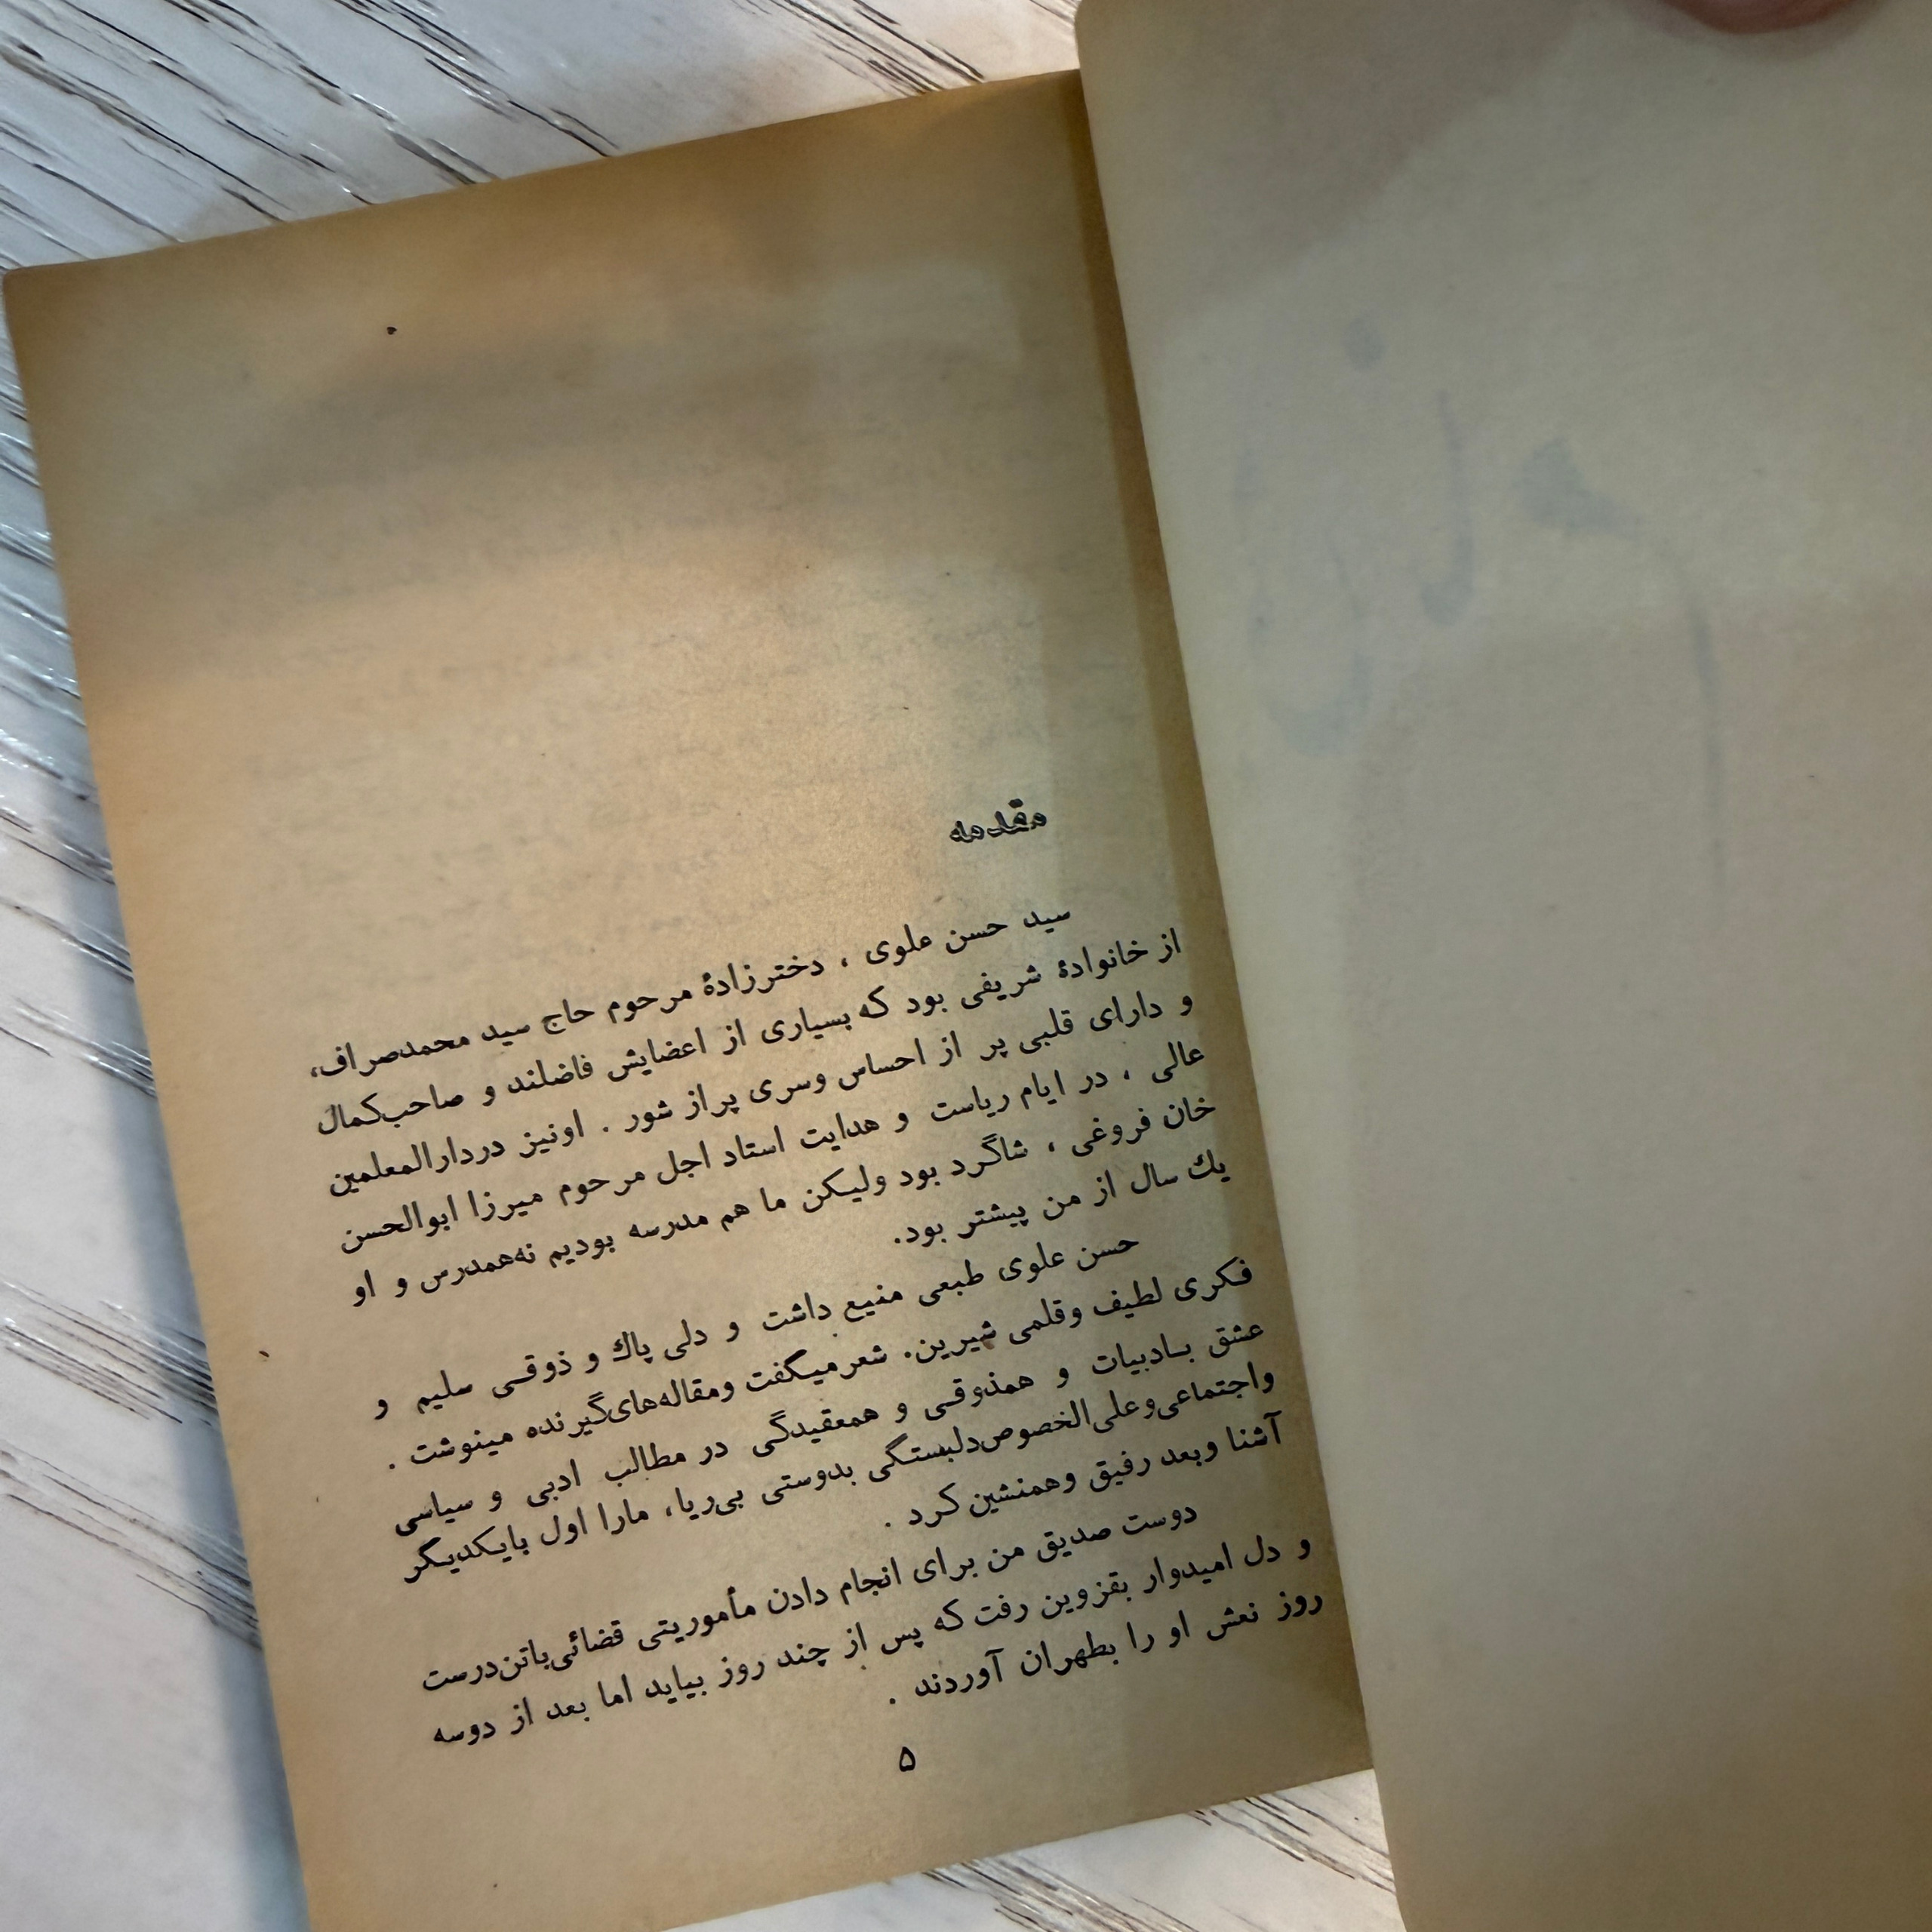 مقدمه
سید حسن علوی ، دخترزادهٔ مرحوم حاج سید محمدصراف،
از خانوادهٔ شریفی بود که بسیاری از اعضایش فاضلند و صاحب‌کمال
و دارای قلبی پر از احساس وسری پراز شور . اونیز دردارالمعلمین
عالی ، در ایام ریاست و هدایت استاد اجل مرحوم میرزا ابوالحسن
خان فروغی ، شاگرد بود ولیکن ما هم مدرسه بودیم نه‌همدرس و او
یك سال از من پیشتر بود.
حسن علوی طبعی منیع داشت و دلی پاك و ذوقی سلیم و
فکری لطیف وقلمی شیرین. شعرمیگفت ومقاله‌های‌گیرنده مینوشت .
عشق بادبیات و همذوقی و همعقیدگی در مطالب ادبی و سیاسی
واجتماعی‌وعلی‌الخصوص‌دلبستگی بدوستی بی‌ریا، مارا اول بایکدیگر
آشنا وبعد رفیق وهمنشین‌کرد .
دوست صدیق من برای انجام دادن مأموریتی قضائی‌باتن‌درست
و دل امیدوار بقزوین رفت که پس از چند روز بیاید اما بعد از دوسه
روز نعش او را بطهران آوردند .
۵